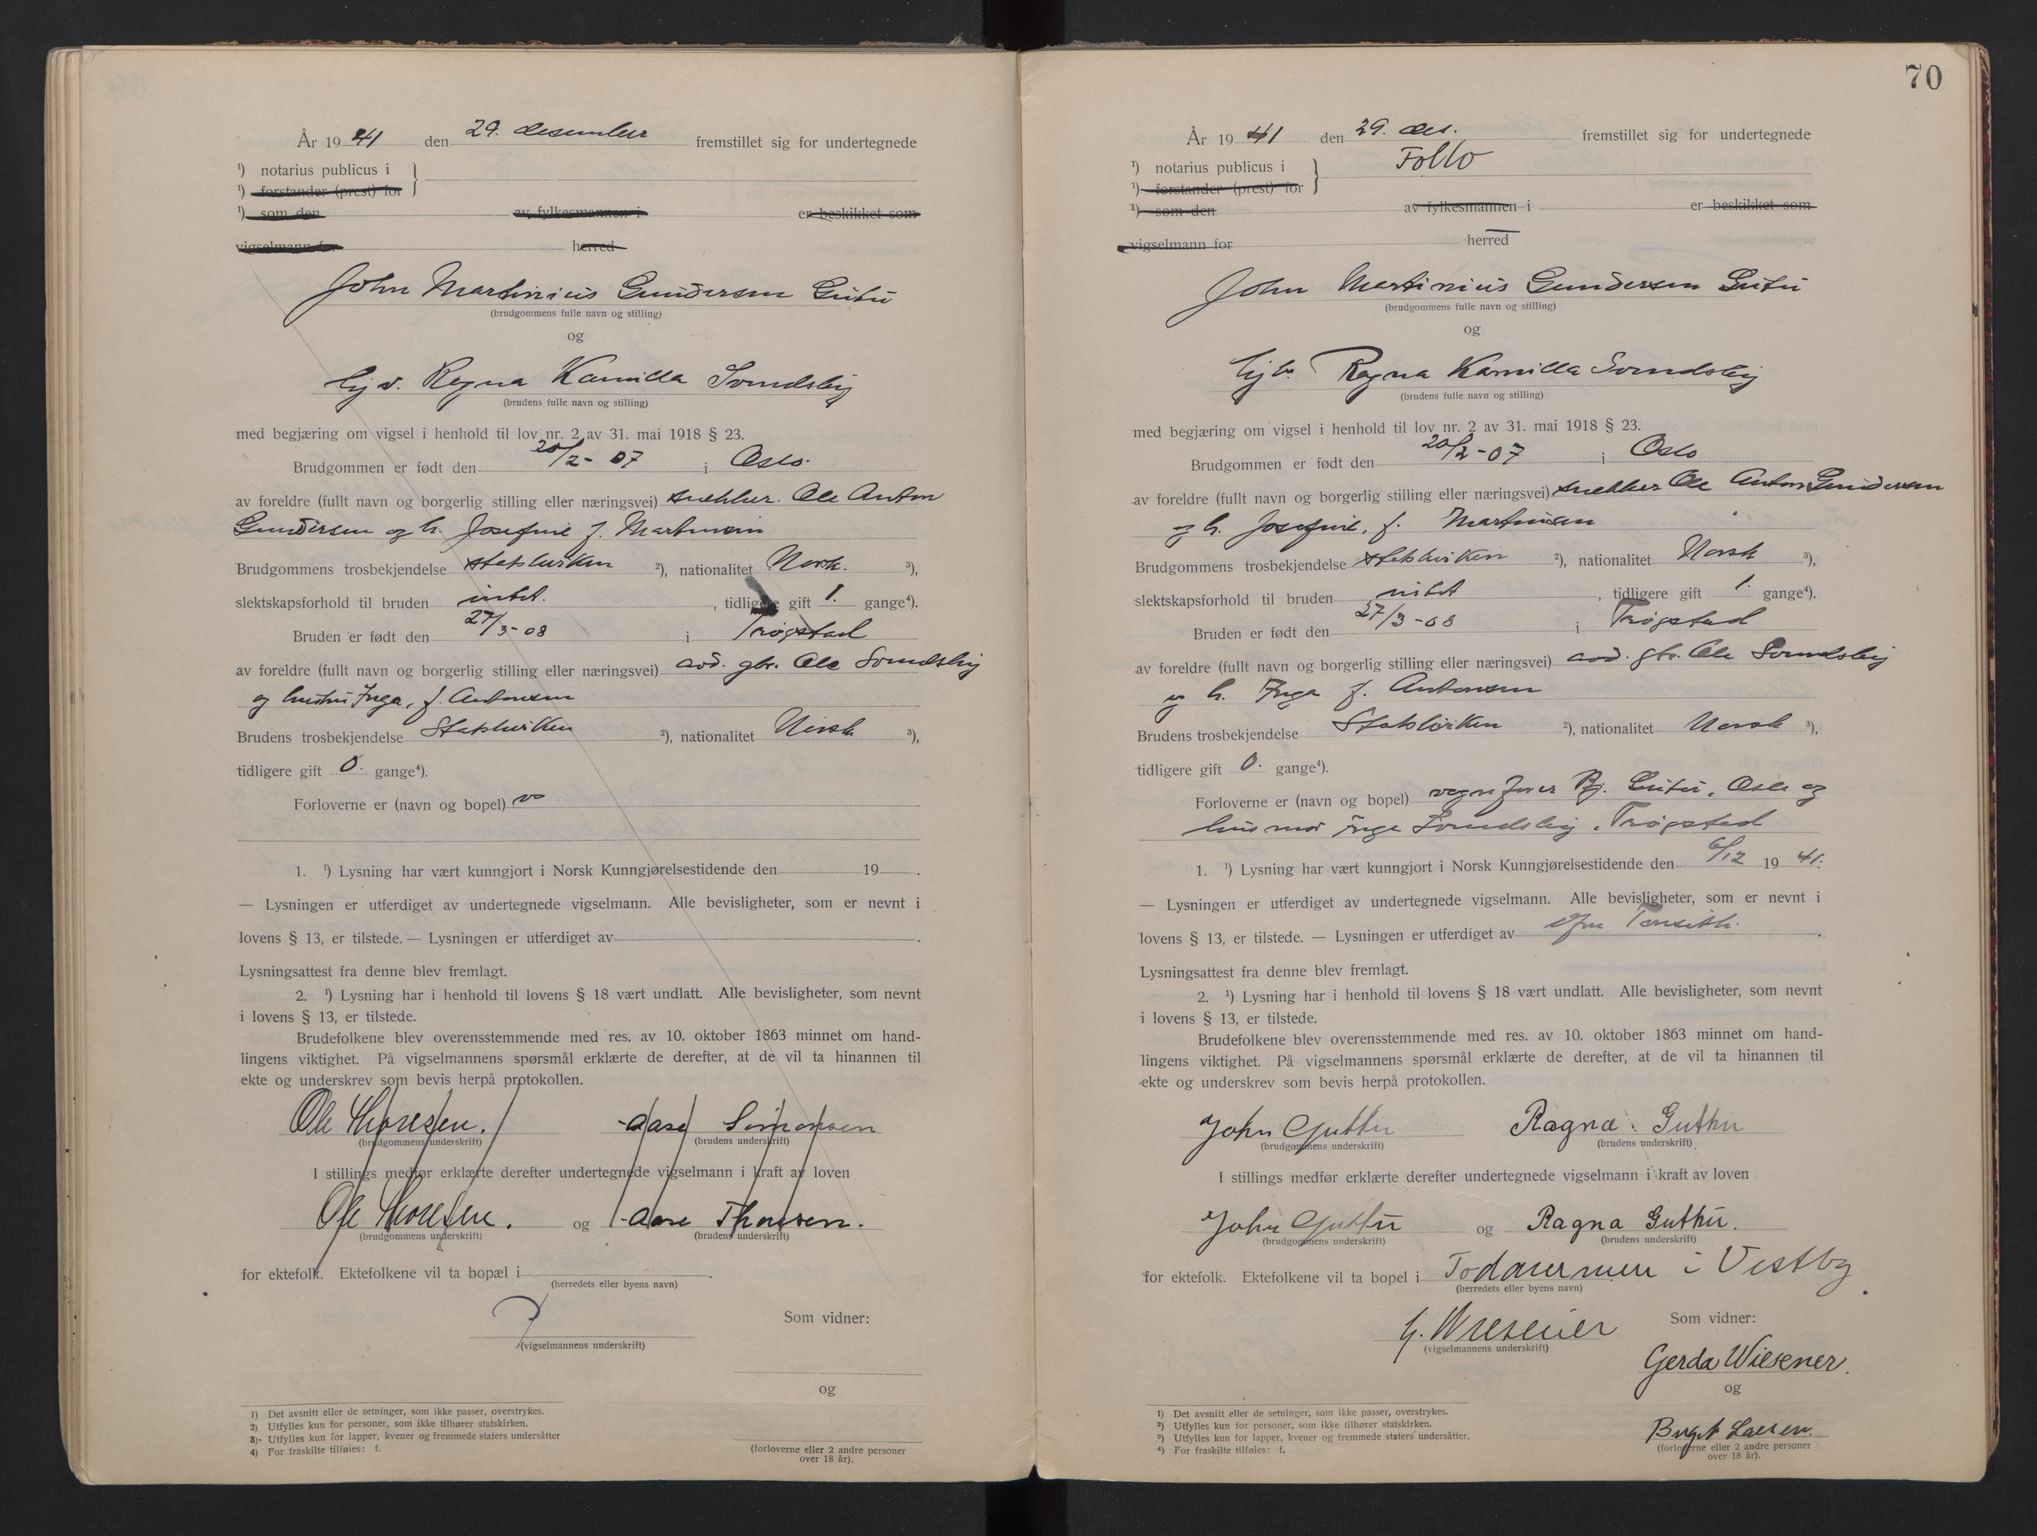 År 1941 den 29. desember fremstillet sig for undertegnede
¹) notarius publicus i
¹) forstander (prest) for
¹) som den av fylkesmannen i er beskikket som
vigselmann for herred
John Martinius Gundersen Gutu
(brudgommens fulle navn og stilling)
og
Ragna Kamilla Somdsby
(brudens fulle navn og stilling)
med begjæring om vigsel i henhold til lov nr. 2 av 31. mai 1918 § 23.
Brudgommen er født den 20/2-07 i Oslo.
av foreldre (fullt navn og borgerlig stilling eller næringsvei) snekker. Ole Anton
Gundersen og h. Josefine f. Martinsen
Brudgommens trosbekjendelse statskirken ²), nationalitet Norsk. ³),
slektskapsforhold til bruden intet. , tidligere gift 1. gange⁴).
Bruden er født den 27/3-08 i Trøgstad
av foreldre (fullt navn og borgerlig stilling eller næringsvei) avd. gbr. Ole Somdsby
og hustru Inga, f. Antonsen
Brudens trosbekjendelse Statskirken ²), nationalitet Norsk ³),
tidligere gift 0. gange⁴).
Forloverne er (navn og bopel)
1. ¹) Lysning har vært kunngjort i Norsk Kunngjørelsestidende den 19 .
— Lysningen er utferdiget av undertegnede vigselmann. Alle bevisligheter, som er nevnt i
lovens § 13, er tilstede. — Lysningen er utferdiget av
Lysningsattest fra denne blev fremlagt.
2. ¹) Lysning har i henhold til lovens § 18 vært undlatt. Alle bevisligheter, som nevnt
i lovens § 13, er tilstede.
Brudefolkene blev overensstemmende med res. av 10. oktober 1863 minnet om hand-
lingens viktighet. På vigselmannens spørsmål erklærte de derefter, at de vil ta hinannen til
ekte og underskrev som bevis herpå protokollen.
Ole Thoresen. Aase Simonsen
(brudgommens underskrift) (brudens underskrift)
I stillings medfør erklærte derefter undertegnede vigselmann i kraft av loven
Ole Thoresen. og Aase Thoresen.
(brudgommens underskrift) (brudens underskrift)
for ektefolk. Ektefolkene vil ta bopæl i .
(herredets eller byens navn)
Som vidner:
(vigselmannens underskrift)
og
1) Det avsnitt eller de setninger, som ikke passer, overstrykes.
2) Utfylles kun for personer, som ikke tilhører statskirken.
3) Utfylles kun for lapper, kvener og fremmede staters undersåtter
4) For fraskilte tilføies: f.
(forloverne eller 2 andre personer
over 18 år).
70
År 1941 den 29. des. fremstillet sig for undertegnede
¹) notarius publicus i Follo
¹) forstander (prest) for
¹) som den av fylkesmannen i er beskikket som
vigselmann for herred
John Martinius Gundersen Gutu
(brudgommens fulle navn og stilling)
og
Ragna Kamilla Somdsby
(brudens fulle navn og stilling)
med begjæring om vigsel i henhold til lov nr. 2 av 31. mai 1918 § 23.
Brudgommen er født den 20/2-07 i Oslo
av foreldre (fullt navn og borgerlig stilling eller næringsvei) snekker Ole Anton Gundersen
og h. Josefine, f. Martinsen
Brudgommens trosbekjendelse statskirken ²), nationalitet Norsk ³),
slektskapsforhold til bruden intet , tidligere gift 1. gange⁴).
Bruden er født den 27/3-08 i Trøgstad
av foreldre (fullt navn og borgerlig stilling eller næringsvei) avd. gbr. Ole Somdsby
og h. Inga f. Antonsen
Brudens trosbekjendelse Statskirken ²), nationalitet Norsk ³),
tidligere gift 0. gange⁴).
Forloverne er (navn og bopel) vognfører Bj. Gutu, Oslo og
husmor Inga Somdsby, Trøgstad
1. ¹) Lysning har vært kunngjort i Norsk Kunngjørelsestidende den 6/12 1941.
— Lysningen er utferdiget av undertegnede vigselmann. Alle bevisligheter, som er nevnt i
lovens § 13, er tilstede. — Lysningen er utferdiget av .
Lysningsattest fra denne blev fremlagt.
2. ¹) Lysning har i henhold til lovens § 18 vært undlatt. Alle bevisligheter, som nevnt
i lovens § 13, er tilstede.
Brudefolkene blev overensstemmende med res. av 10. oktober 1863 minnet om hand-
lingens viktighet. På vigselmannens spørsmål erklærte de derefter, at de vil ta hinannen til
ekte og underskrev som bevis herpå protokollen.
John Guttu Ragna Guttu
(brudgommens underskrift) (brudens underskrift)
I stillings medfør erklærte derefter undertegnede vigselmann i kraft av loven
John Guttu og Ragna Guttu.
(brudgommens underskrift) (brudens underskrift)
for ektefolk. Ektefolkene vil ta bopel i i Vestby
(herredets eller byens navn)
G. Wiesener Som vidner:
(vigselmannens underskrift)
Gerda Wiesener.
og
Birgit Larsen.
1) Det avsnitt eller de setninger, som ikke passer, overstrykes.
2) Utfylles kun for personer, som ikke tilhører statskirken.
3) Utfylles kun for lapper, kvener og fremmede staters undersåtter.
4) For fraskilte tilføies: f.
(forloverne eller 2 andre personer
over 18 år).